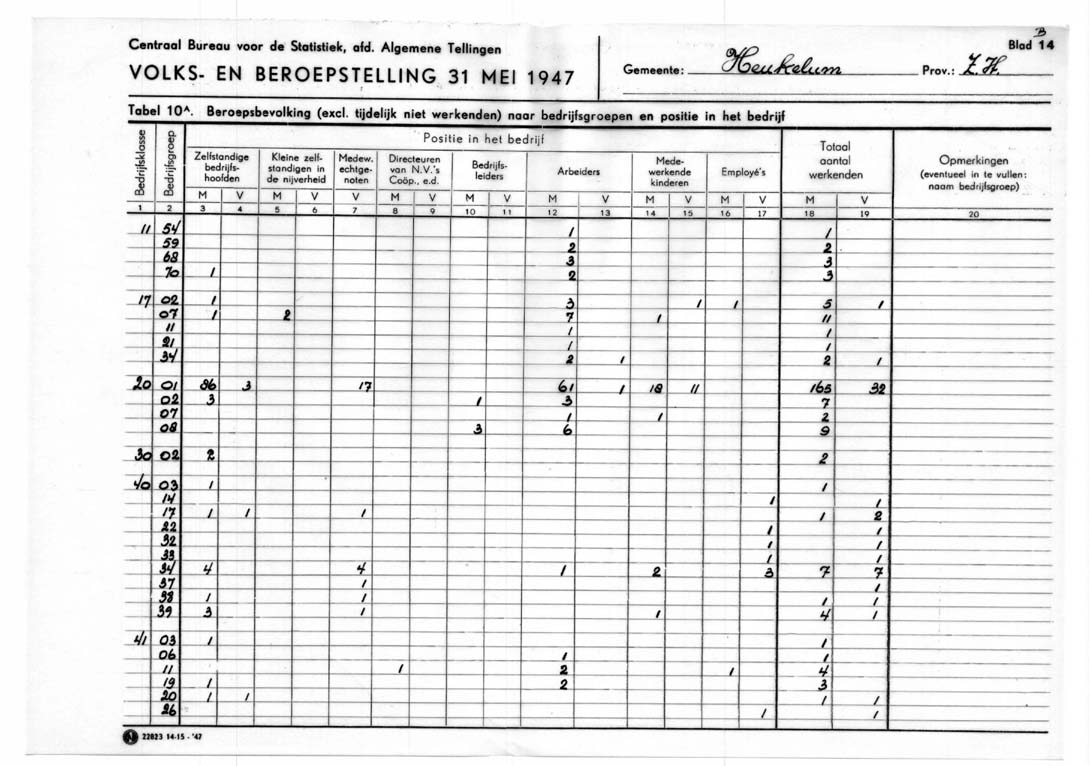 B
Centraal Bureau voor de Statistiek, afd. Algemene Tellingen
Blad 14
VOLKS- EN BEROEPSTELLING 31 MEI 1947
Gemeente: Heukelum Prov.: Z.H.
Tabel 10A. Beroepsbevolking (excl. tijdelijk niet werkenden) naar bedrijfsgroepen en positie in het bedrijf
Bedrijfsklasse
Bedrijfsgroep
Positie in het bedrijf
Zelfstandige bedrijfs-hoofden
Kleine zelf-standigen in de nijverheid
Medew. echtge-noten
Directeuren van N.V.'s Coöp., e.d.
Bedrijfs-leiders
Arbeiders
Mede-werkende kinderen
Employé's
Totaal aantal werkenden
Opmerkingen (eventueel in te vullen: naam bedrijfsgroep)
M V M V V M V M V M V M V M V M V
1 2 3 4 5 6 7 8 9 10 11 12 13 14 15 16 17 18 19 20
11 54 1 1
59 2 2
68 3 3
70 1 2 3
17 02 1 3 1 1 5 1
07 1 2 7 1 11
11 1 1
21 1 1
34 2 1 2 1
20 01 86 3 17 61 1 18 11 165 32
02 3 1 3 7
07 1 1 2
08 3 6 9
30 02 2 2
40 03 1 1
14 1 1
17 1 1 1 1 2
22 1 1
32 1 1
33 1 1
34 4 4 1 2 3 7 7
37 1 1
38 1 1 1 1
39 3 1 1 4 1
41 03 1 1
06 1 1
11 1 2 1 4
19 1 2 3
20 1 1 1 1
26 1 1
N 22823 14-15 - '47